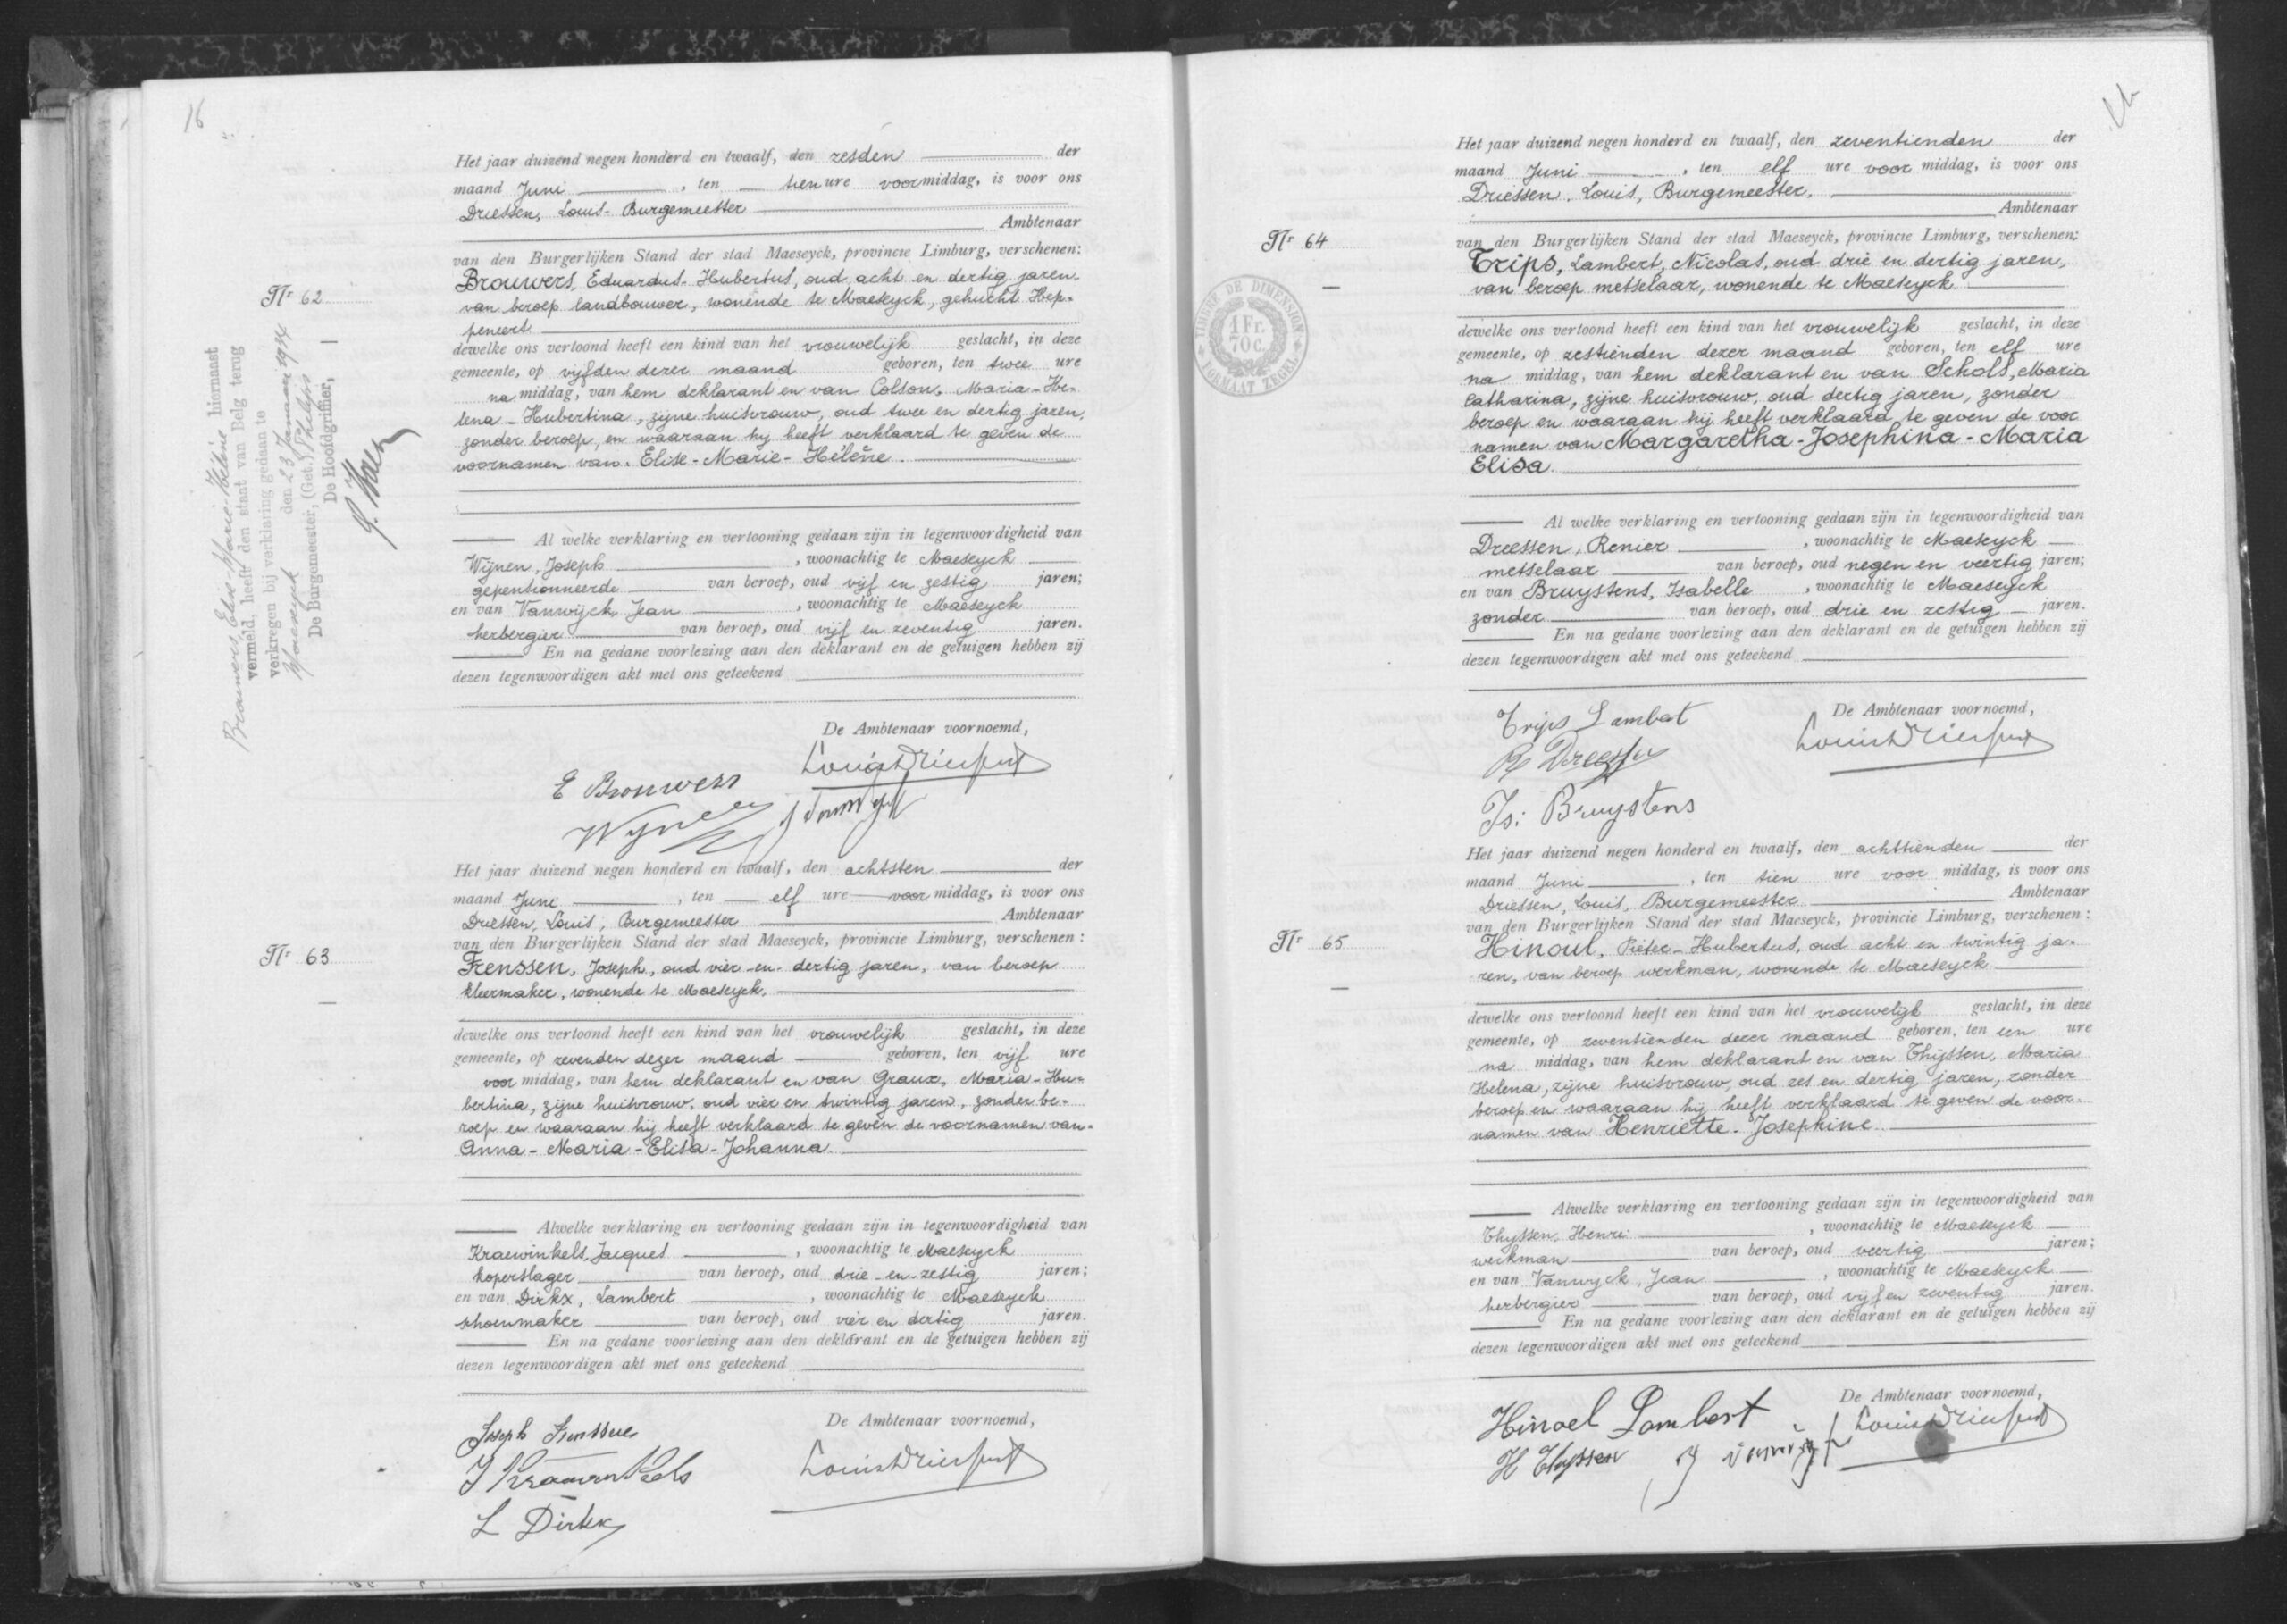 16
Het jaar duizend negen honderd en twaalf, den zesden der
maand Juni, ten tien ure voormiddag, is voor ons
Driessen, Louis - Burgemeester
Ambtenaar
van den Burgerlijken Stand der stad Maeseyck, provincie Limburg, verschenen:
Nr 62
Brouwers, Eduardus-Hubertus, oud acht en dertig jaren,
van beroep landbouwer, wonende te Maeseyck, gehucht Hep-
peneert
dewelke ons vertoond heeft een kind van het vrouwelijk geslacht, in deze
gemeente, op vijfden dezer maand geboren, ten twee ure
na middag, van hem deklarant en van Colson, Maria-He-
lena-Hubertina, zijne huisvrouw, oud twee en dertig jaren,
zonder beroep, en waaraan hy heeft verklaard te geven de
voornamen van Elise-Marie-Hélène.
Al welke verklaring en vertooning gedaan zijn in tegenwoordigheid van
Wijnen, Joseph, woonachtig te Maeseyck
gepensionneerde van beroep, oud vijf en zestig jaren;
en van Vanwijck, Jean, woonachtig te Maeseyck
herbergier van beroep, oud vijf en zeventig jaren.
En na gedane voorlezing aan den deklarant en de getuigen hebben zij
dezen tegenwoordigen akt met ons geteekend
De Ambtenaar voornoemd,
Louis Driessen
E Brouwers
Wijnen
Brouwers Elise-Marie-Hélène hiernaast
vermeld, heeft den staat van Belg terug
verkregen bij verklaring gedaan te
Maeseyck den 23 Januari 19
De Burgemeester, (Get.)
De Hoofdgriffier,
Het jaar duizend negen honderd en twaalf, den achtsten der
maand Juni, ten elf ure voor middag, is voor ons
Driessen, Louis, Burgemeester Ambtenaar
van den Burgerlijken Stand der stad Maeseyck, provincie Limburg, verschenen:
Nr 63
Frenssen, Joseph, oud vier-en-dertig jaren, van beroep
kleermaker, wonende te Maeseyck,
dewelke ons vertoond heeft een kind van het vrouwelijk geslacht, in deze
gemeente, op zevenden dezer maand geboren, ten vijf ure
voor middag, van hem deklarant en van Graux, Maria-Hu-
bertina, zijne huisvrouw, oud vier en twintig jaren, zonder be-
roep en waaraan hij heeft verklaard te geven de voornamen van
Anna-Maria-Elisa-Johanna
Alwelke verklaring en vertooning gedaan zijn in tegenwoordigheid van
Kraewinkels, Jacques, woonachtig te Maeseyck
koperslager van beroep, oud drie-en-zestig jaren;
en van Dirkx, Lambert, woonachtig te Maeseyck
schoenmaker van beroep, oud vier en dertig jaren.
En na gedane voorlezing aan den deklarant en de getuigen hebben zij
dezen tegenwoordigen akt met ons geteekend
De Ambtenaar voornoemd,
Louis Driessen
Joseph Frenssen
J Kraewinkels
L Dirkx
Het jaar duizend negen honderd en twaalf, den zeventienden der
maand Juni, ten elf ure voor middag, is voor ons
Driessen, Louis, Burgemeester,
Ambtenaar
van den Burgerlijken Stand der stad Maeseyck, provincie Limburg, verschenen:
Nr 64
TIMBRE DE DIMENSION
1 Fr.
70 c.
FORMAAT ZEGEL
Trips, Lambert, Nicolas, oud drie en dertig jaren,
van beroep metselaar, wonende te Maeseyck
dewelke ons vertoond heeft een kind van het vrouwelijk geslacht, in deze
gemeente, op zestienden dezer maand geboren, ten elf ure
na middag, van hem deklarant en van Schols, Maria
Catharina, zijne huisvrouw, oud dertig jaren, zonder
beroep en waaraan hij heeft verklaard te geven de voor
namen van Margaretha-Josephina-Maria
Elisa
Al welke verklaring en vertooning gedaan zijn in tegenwoordigheid van
Dreessen, Renier, woonachtig te Maeseyck
metselaar van beroep, oud negen en veertig jaren;
en van Bruystens, Isabelle, woonachtig te Maeseyck
zonder van beroep, oud drie en zestig jaren.
En na gedane voorlezing aan den deklarant en de getuigen hebben zij
dezen tegenwoordigen akt met ons geteekend
De Ambtenaar voornoemd,
Louis Driessen
Trips Lambert
R Dreessen
Is: Bruystens
Het jaar duizend negen honderd en twaalf, den achttienden der
maand Juni, ten tien ure voor middag, is voor ons
Driessen, Louis, Burgemeester Ambtenaar
van den Burgerlijken Stand der stad Maeseyck, provincie Limburg, verschenen:
Nr 65
Hinoul, Pieter-Hubertus, oud acht en twintig ja-
ren, van beroep werkman, wonende te Maeseyck
dewelke ons vertoond heeft een kind van het vrouwelijk geslacht, in deze
gemeente, op zeventienden dezer maand geboren, ten een ure
na middag, van hem deklarant en van Thijssen, Maria
Helena, zijne huisvrouw, oud zes en dertig jaren, zonder
beroep en waaraan hij heeft verklaard te geven de voor-
namen van Henriette-Josephine
Alwelke verklaring en vertooning gedaan zijn in tegenwoordigheid van
Thyssen, Henri, woonachtig te Maeseyck
werkman van beroep, oud veertig jaren;
en van Vanwyck, Jean, woonachtig te Maeseyck
herbergier van beroep, oud vijf en zeventig jaren.
En na gedane voorlezing aan den deklarant en de getuigen hebben zij
dezen tegenwoordigen akt met ons geteekend
De Ambtenaar voornoemd,
Louis Driessen
Hinoel Lambert
H Thyssen